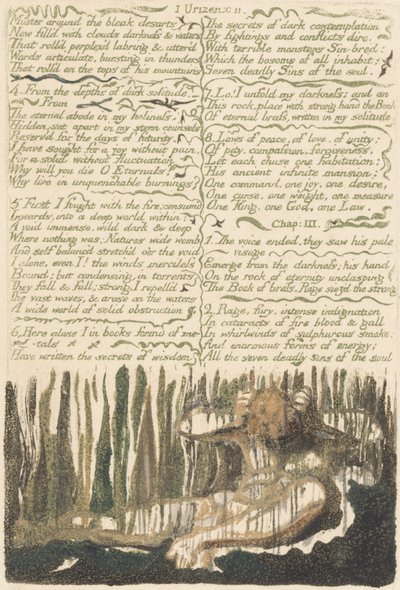 I Urizen: C II.
Muster around the bleak desarts
Now filld with clouds, darkness & waters
That rolld perplexd labring & utterd
Words articulate, bursting in thunders
That rolld on the tops of his mountains
4. From the depths of dark solitude.
From
The eternal abode in my holiness,
Hidden, set apart in my stern counsels
Reserv'd for the days of futurity,
I have sought for a joy without pain,
For a solid without fluctuation
Why will you die O Eternals?
Why live in unquenchable burnings?
5 First I fought with the fire; consum'd
Inwards, into a deep world within:
A void immense, wild dark & deep
Where nothing was; Natures wide womb
And self balanc'd stretch'd o'er the void
I alone, even I! the winds merciless
Bound; but condensing, in torrents
They fall & fall; strong, I repell'd
The vast waves, & arose on the waters
A wide world of solid obstruction
6, Here alone I in books form'd of me-
-tals
Have written the secrets of wisdom
The secrets of dark contemplation
By fightings and conflicts dire,
With terrible monsters Sin-bred:
Which the bosoms of all inhabit;
Seven deadly Sins of the soul.
7. Lo! I unfold my darkness: and on
This rock, place with strong hand the Book
Of eternal brass, written in my solitude.
8. Laws of peace, of love, of unity:
Of pity, compassion, forgiveness.
Let each chuse one habitation:
His ancient infinite mansion:
One command, one joy, one desire,
One curse, one weight, one measure
One King, one God, one Law.
Chap: III.
1. The voice ended, they saw his pale
visage
Emerge from the darkness; his hand
On the rock of eternity unclasping
The Book of brass. Rage siez'd the strong
2. Rage, fury, intense indignation
In cataracts of fire blood & gall
In whirlwinds of sulphurous smoke:
And enormous forms of energy;
All the seven deadly sins of the soul